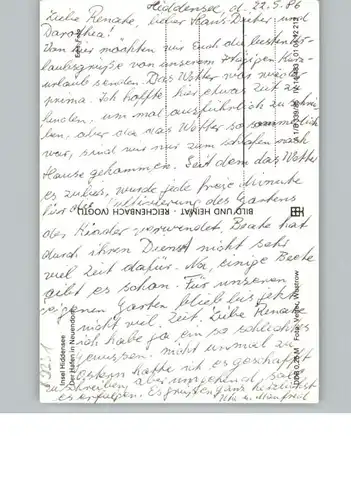 Hiddensee, d. 22.5.86
Liebe Renate, lieber Hans Dieter und
Dorothea!
Von hier möchten wir Euch die besten Ur-
laubsgrüße von unserem tägigen Kurz-
urlaub senden. Das Wetter war wieder
prima. Ich hoffte hier etwas Zeit zu
finden, um mal ausführlich zu schrei-
ben, aber da das Wetter so sommerlich
war, sind wir nur zum schlafen nach
Hause gekommen. Seit dem das Wetter
es zuließ, wurde jede freie Minute
für die Kultivierung des Gartens
der Kinder verwendet. Beate hat
durch ihren Dienst nicht sehr
viel Zeit dafür. Na, einige Beete
gibt es schon. Für unseren
eigenen Garten blieb bis jetzt
nicht viel Zeit. Liebe Renate
ich habe ja ein so schlechtes
Gewissen. nicht einmal zu
Ostern hatte ich es geschafft
zu schreiben, aber umgehend soll
es erfolgen. Es grüßen ganz herzlichst
u. Manfred
BILD UND HEIMAT · REICHENBACH (VOGTL)
Insel Hiddensee
Der Hafen in Neuendorf